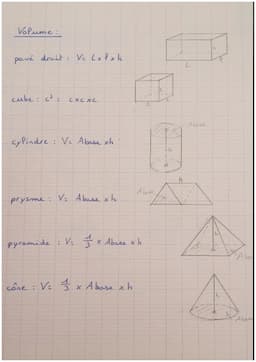 Volume :
pavé droit : V= L x l x h
cube : c³ = c x c x c
cylindre : V= Abase x h
prysme : V= Abase x h
pyramide : V= 1/3 x Abase x h
cône : V= 1/3 x Abase x h